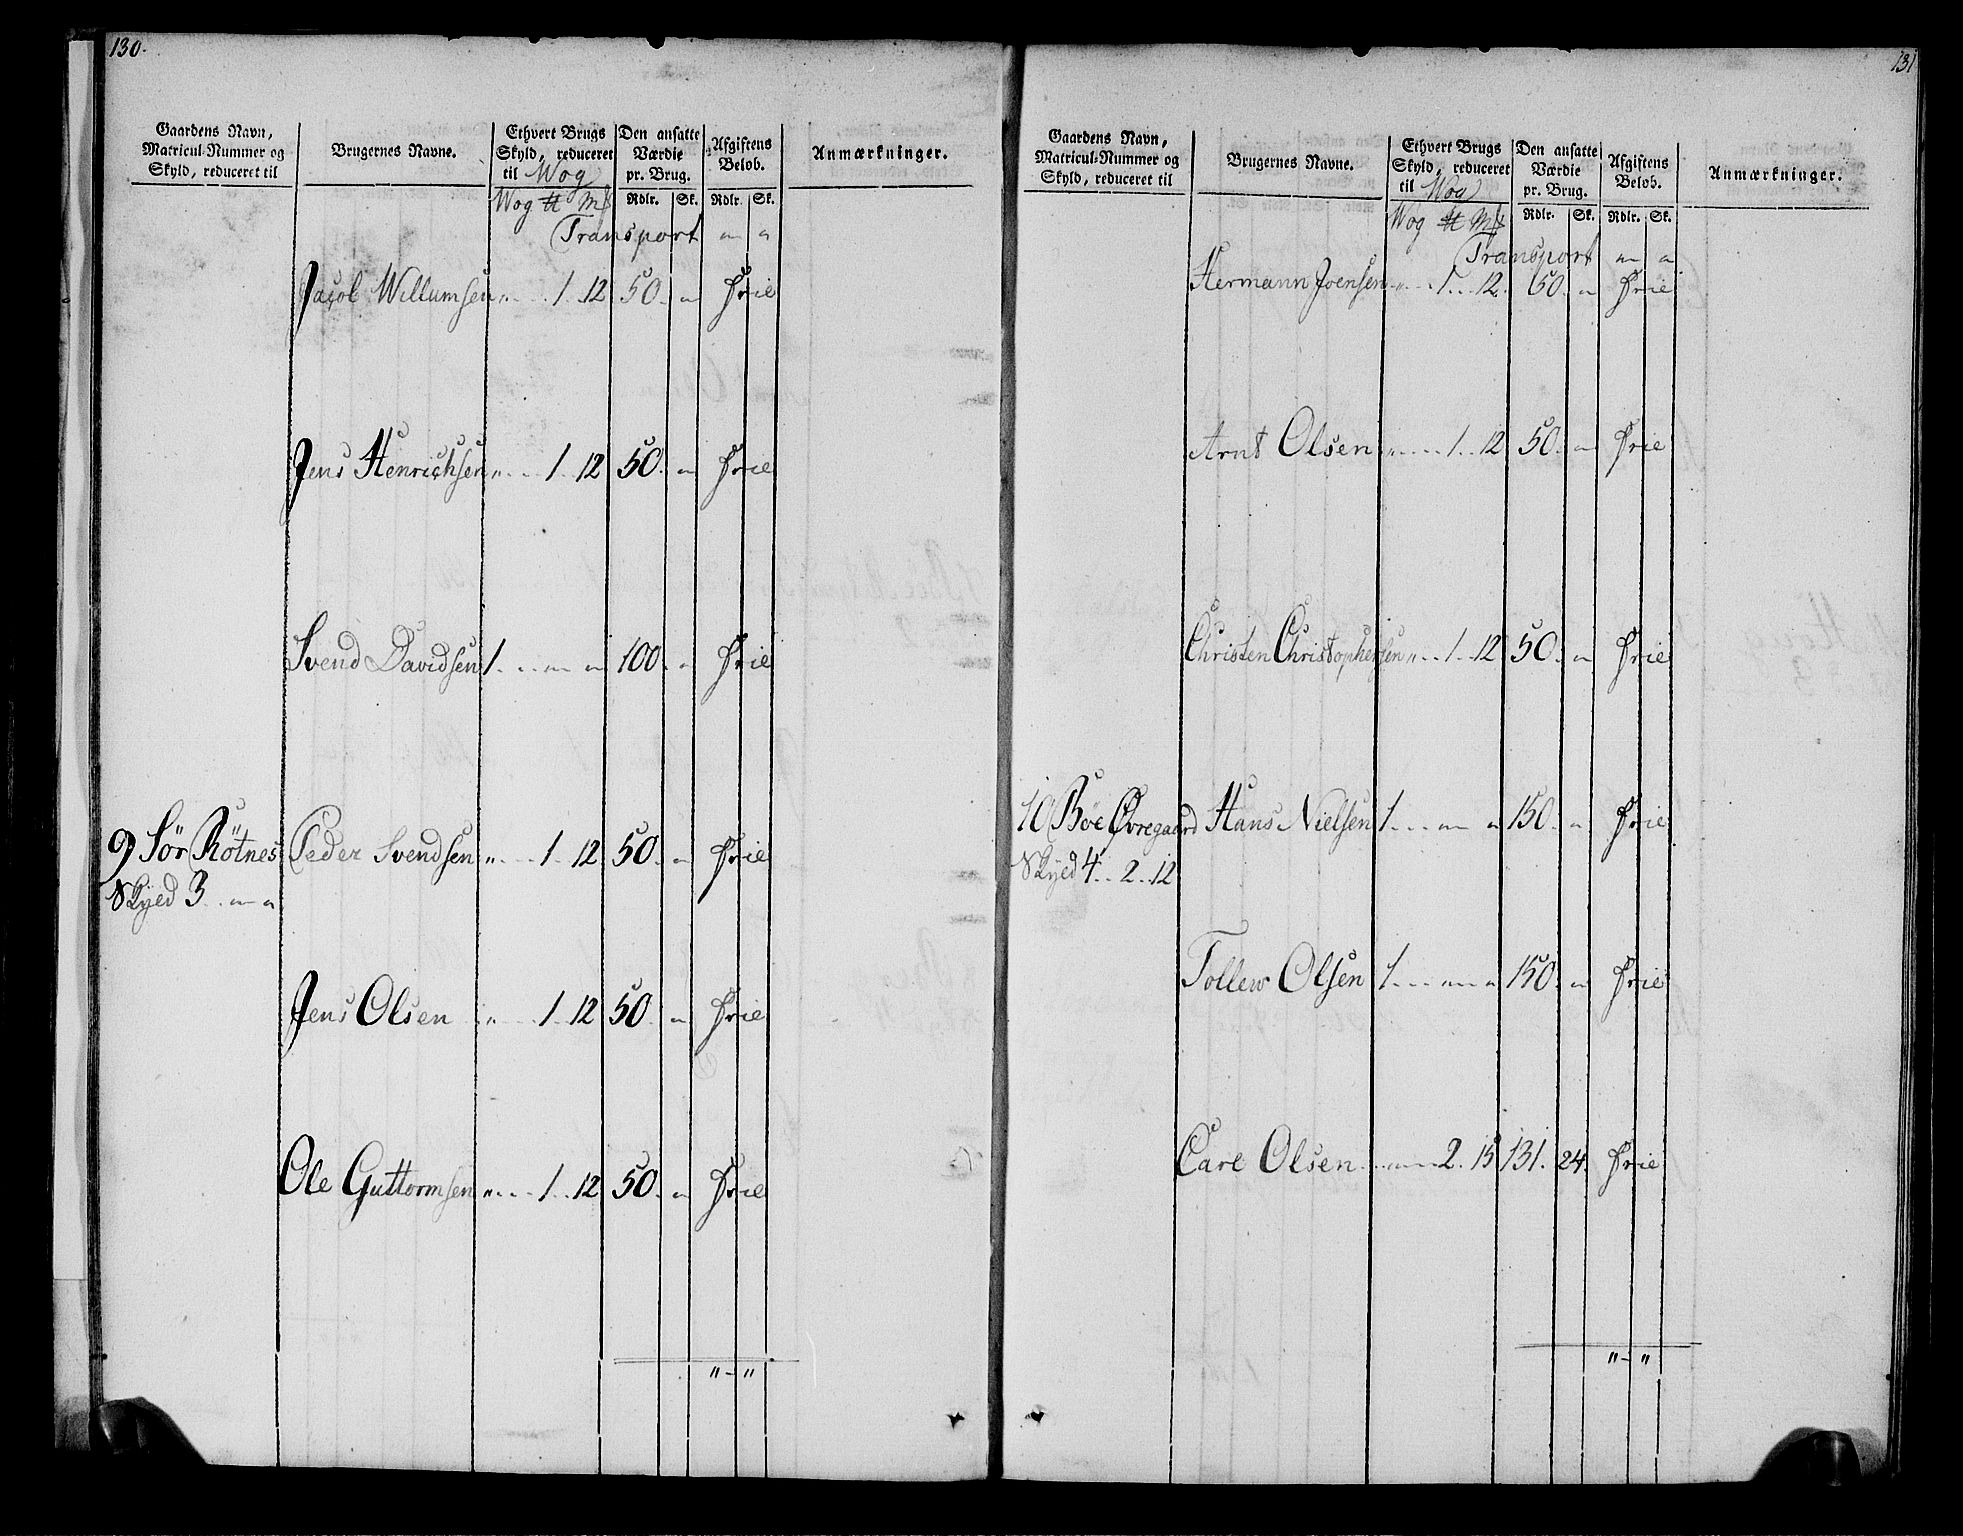 130.
Gaardens Navn, Matricul-Nummer og Skyld, reduceret til | Brugernes Navne. | Ethvert Brugs Skyld, reduceret til Wog | Den ansatte Værdie pr. Brug. | Afgiftens Beløb. | Anmærkninger.
Wog ℔ Mk | Rdlr. | Sk. | Rdlr. | Sk.
Transport " "
Jacob Willumsen " 1 12 50. " Frie
Jens Henrichsen " 1 12 50. " Frie
Svend Davidsen 1 " " 100. " Frie
9 Sør Røtnes Peder Svendsen " 1 12 50. " Frie
Skyld 3 " "
Jens Olsen " 1 12 50. " Frie
Ole Guttormsen " 1 12 50. " Frie
" - "
131
Gaardens Navn, Matricul-Nummer og Skyld, reduceret til | Brugernes Navne. | Ethvert Brugs Skyld, reduceret til Wog | Den ansatte Værdie pr. Brug. | Afgiftens Beløb. | Anmærkninger.
Wog ℔ Mk | Rdlr. | Sk. | Rdlr. | Sk.
Transport " "
Hermann Joensen " 1 12. 50. " Frie
Arnt Olsen " 1 12 50. " Frie
Christen Christophersen " 1 12 50. " Frie
10 Böe Øvregaard Hans Nielsen 1 " " 150. " Frie
Skyld 4 2 12
Tollew Olsen 1 " " 150. " Frie
Carl Olsen " 2 15 131. 24. Frie
" - "